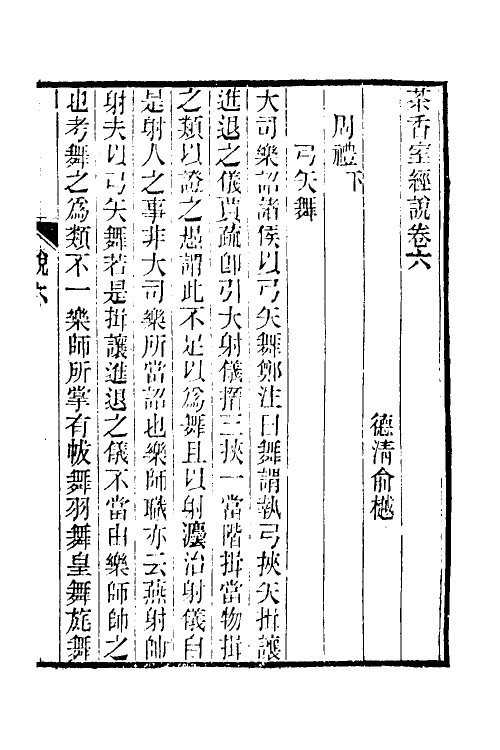 茶香室經說卷六
德清俞樾
周禮下
弓矢舞
大司樂詔諸侯以弓矢舞鄭注曰舞謂執弓挾矢揖讓
進退之儀賈疏卽引大射儀搢三挾一當階揖當物揖
之類以證之愚謂此不足以爲舞且以射灋治射儀自
是射人之事非大司樂所當詔也樂師職亦云燕射帥
射夫以弓矢舞若是揖讓進退之儀不當由樂師帥之
也考舞之爲類不一樂師所掌有帗舞羽舞皇舞旄舞
說六